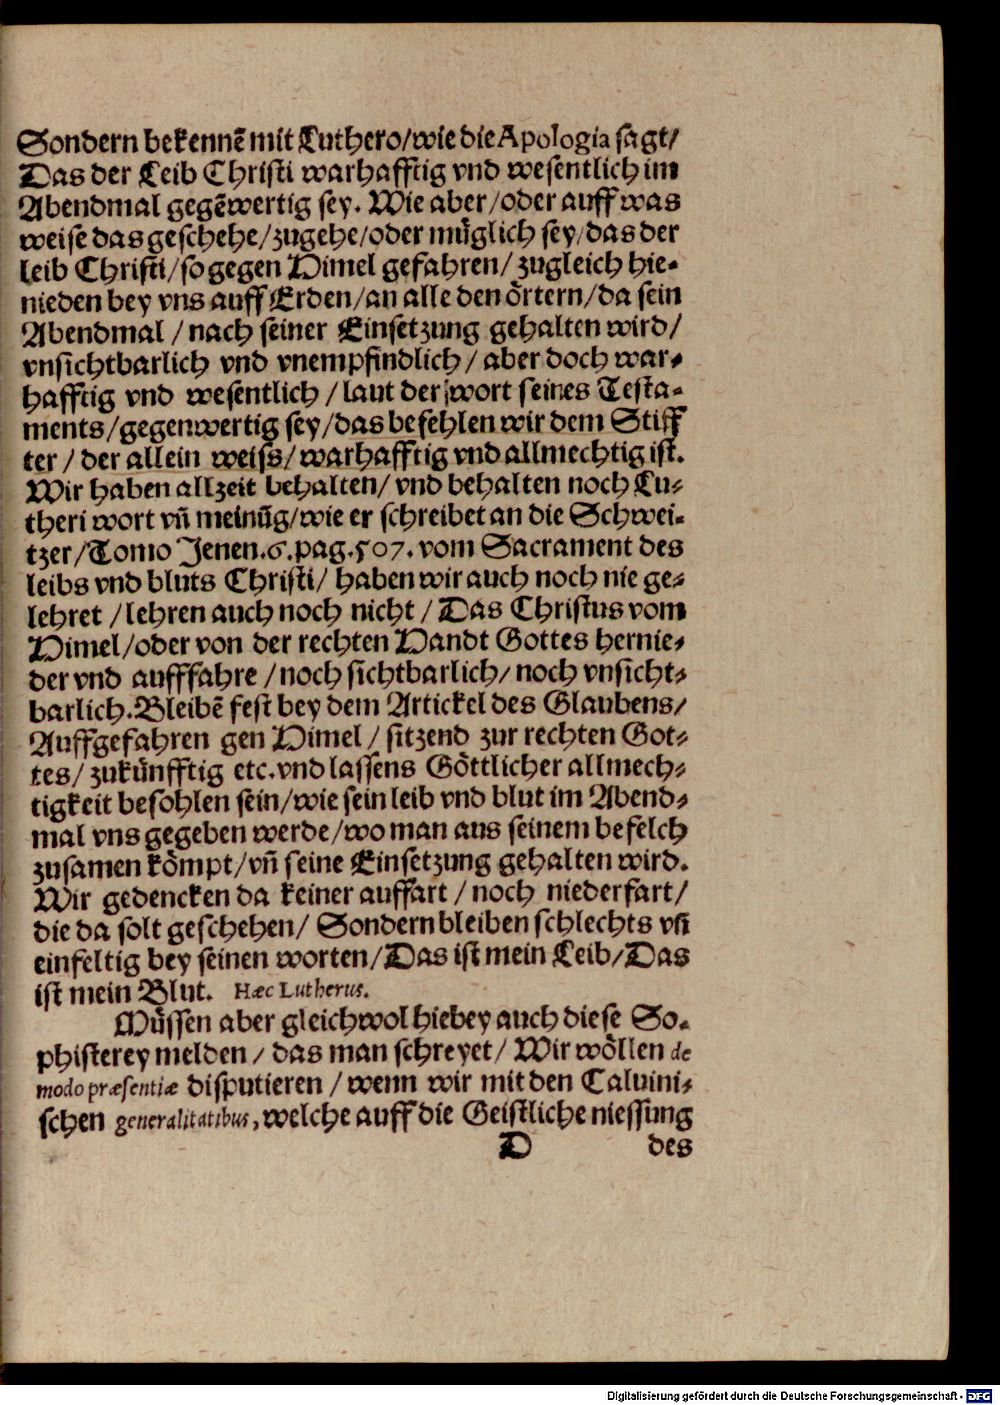 Sondern bekennẽ mit Luthero/wie die Apologia sagt/
Das der Leib Christi warhafftig vnd wesentlich im
Abendmal gegẽwertig sey. Wie aber/oder auff was
weise das geschehe/zugehe/oder müglich sey/das der
leib Christi/so gegen Himel gefahren/zugleich hie-
nieden bey vns auff Erden/an alle den örtern/da sein
Abendmal/nach seiner Einsetzung gehalten wird/
vnsichtbarlich vnd vnempfindlich/aber doch war-
hafftig vnd wesentlich/laut der wort seines Testa-
ments/gegenwertig sey/das befehlen wir dem Stiff
ter/der allein weiss/warhafftig vnd allmechtig ist.
Wir haben allzeit behalten/vnd behalten noch Lu-
theri wort vñ meinũg/wie er schreibet an die Schwei-
tzer/Tomo Jenen.6.pag.507. vom Sacrament des
leibs vnd bluts Christi/haben wir auch noch nie ge-
lehret/lehren auch noch nicht/Das Christus vom
Himel/oder von der rechten Handt Gottes hernie-
der vnd aufffahre/noch sichtbarlich/noch vnsicht-
barlich. Bleibẽ fest bey dem Artickel des Glaubens/
Auffgefahren gen Himel/sitzend zur rechten Got-
tes/zukünfftig etc. vnd lassens Göttlicher allmech-
tigkeit befohlen sein/wie sein leib vnd blut im Abend-
mal vns gegeben werde/wo man aus seinem befelch
zusamen kömpt/vñ seine Einsetzung gehalten wird.
Wir gedencken da keiner auffart/noch niederfart/
die da solt geschehen/Sondern bleiben schlechts vñ
einfeltig bey seinen worten/Das ist mein Leib/Das
ist mein Blut. Hæc Lutherus.
Müssen aber gleichwol hiebey auch diese So-
phisterey melden/das man schreyet/Wir wöllen de
modo præsentiæ disputieren/wenn wir mit den Caluini-
schen generalitatibus, welche auff die Geistliche niessung
D des
Digitalisierung gefördert durch die Deutsche Forschungsgemeinschaft - DFG